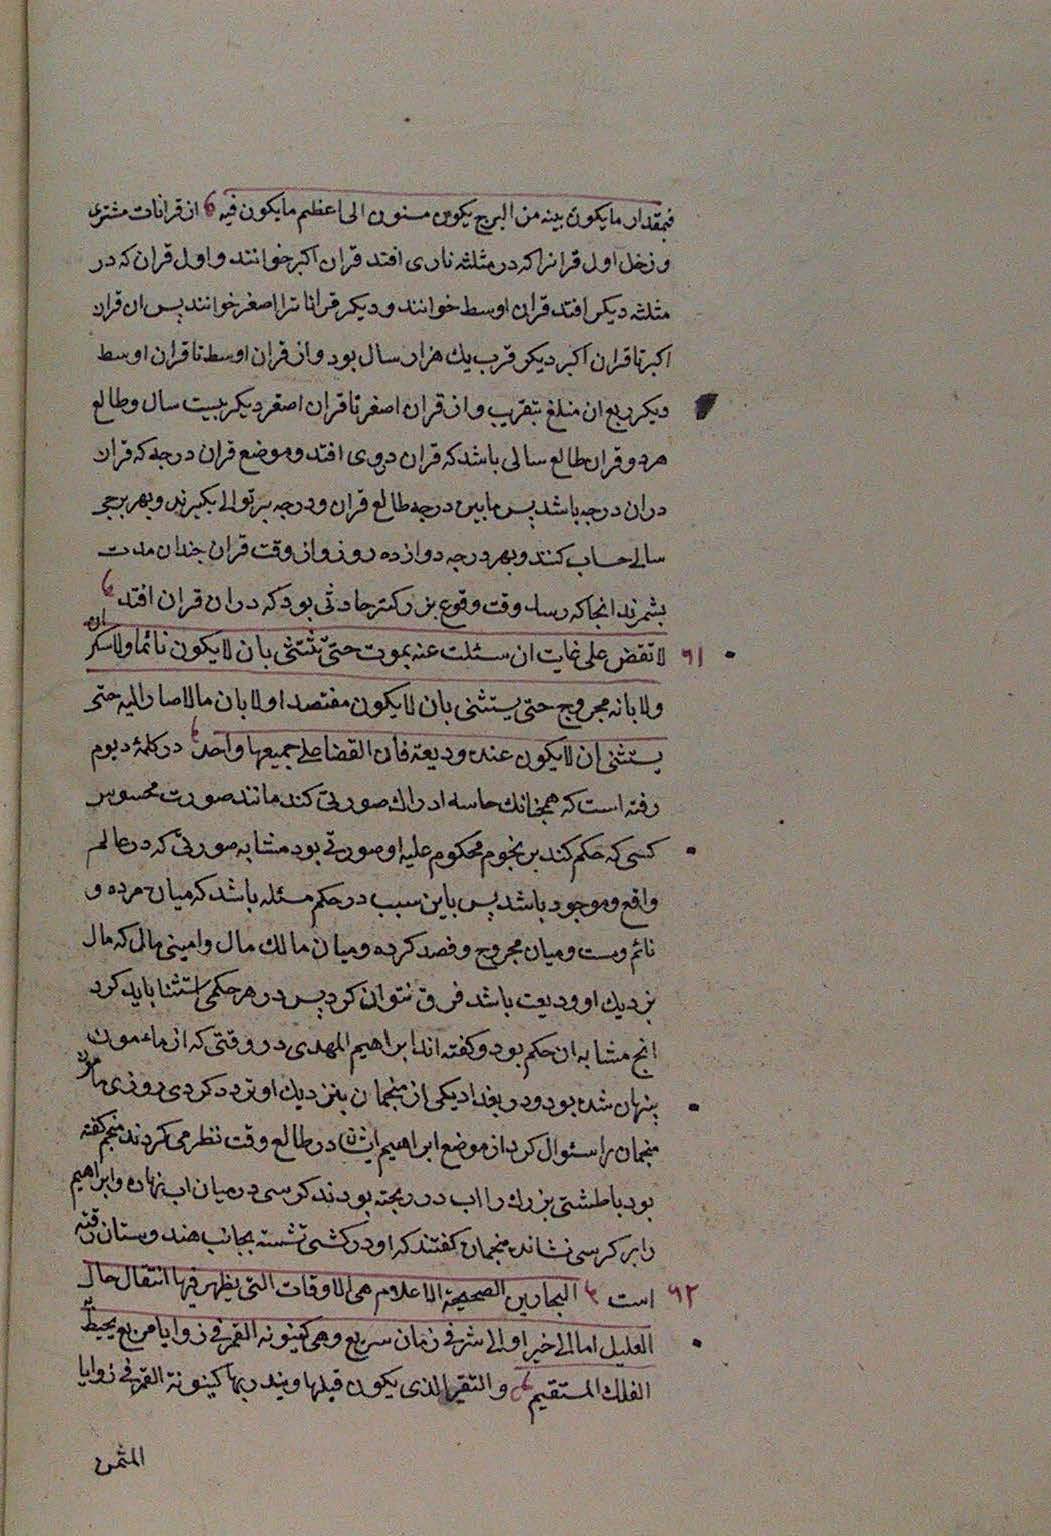 فبمقدار ما یکون بینه من البرج یکون مسنون الی اعظم ما یکون فیه از قرانات مشتری
و زحل اول قرانرا که در مثلثه ناری افتد قران اکبر خوانند و اول قران که در
مثلثه دیکر افتد قران اوسط خوانند و دیکر قراناترا اصغر خوانند پس از قران
اکبر تا قران اکبر دیکر قرب یك هزار سال بود و از قران اوسط تا قران اوسط
دیکر ربع ان مبلغ بتقریب و از قران اصغر تا قران اصغر دیکر بیست سال و طالع
هر دو قران طالع سالی باشد که قران در وی افتد و موضع قران درجه که قران
در ان درجه باشد پس ما بین درجه طالع قران و درجه بر توالی بکیرند و بهر برجی
سالی حساب کنند و بهر درجه دوازده روز و از وقت قران چندان مدت
بشمرند انجا که رسد وقت وقوع بزرکتر حادثی بود که در ان قران افتد
۹۱ لا تقض علی غایت ان سئلت عنه بموت حتی تثتثنی بان لا یکون نائما و لا سکران
و لا بانه مجروح حتی یستثنی بان لا یکون مفتصد او لا بان مالا صار الیه حتی
یستثنی ان لا یکون عنده ودیعة فان القضا علی جمیعها واحد در کلمهٔ دیوم
رفته است که همچنانك حاسه ادراك صورتی کند مانند صورت محسوس
کسی که حکم کند بر نجوم محکوم علیه او صورتی بود مشابه صورتی که در عالم
واقع و موجود باشد پس باین سبب در حکم مسئله باشد که میان مرده و
نائم و مست و میان مجروح و فصد کرده و میان مالك مال و امینی مال که مال
نزدیك او ودیعت باشد فرق نتوان کرد پس در هر حکمی استثنا باید کرد
انچ مشابه ان حکم بود و کفته اند ابراهیم المهدی در وقتی که از ماءمون
پنهان شده بود و در بغداد یکی از منجمان بنزدیك او تردد کردی روزی مامون
منجمان را سئوال کرد از موضع ابراهیم ایشان در طالع وقت نظر می کردند منجم کفته
بود با طشتی بزرك را اب در ریخته بودند کرسی در میان اب نهاده و ابراهیم
را بر کرسی نشانده منجمان کفتند که او در کشتی نشسته بجانب هندوستان رفته
۹۲ است البحارین الصحیحة الاعلام هی الاوقات التی یظهر فیها انتقال حال
العلیل اما الی خیر او الی شر فی زمان سریع و هی کینونه القمر فی زوایا مربع یحیط به
الفلك المستقیم و التغیر الذی یکون قبلها و ینذر بها کینونة القمر فی زوایا
المثمن